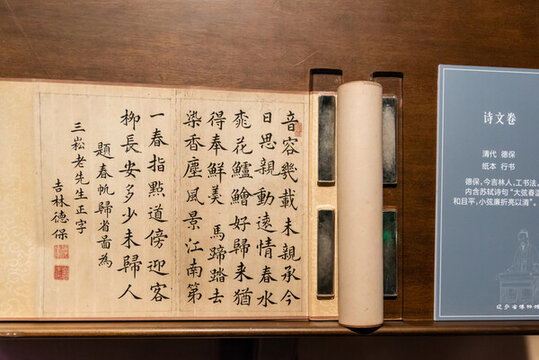 音容幾載未親承今
日思親動遠情春水
桃花鱸鱠好歸来猶
得奉鮮美 馬蹄踏去
染香塵風景江南第
一春指點道傍迎客
柳長安多少未歸人
題春帆歸省圖為
三崧老先生正字
吉林德保
诗文卷
清代 德保
纸本 行书
德保,今吉林人,工书法,
内含苏轼诗句“大弦春温
和且平,小弦廉折亮以清”。
辽宁省博物馆